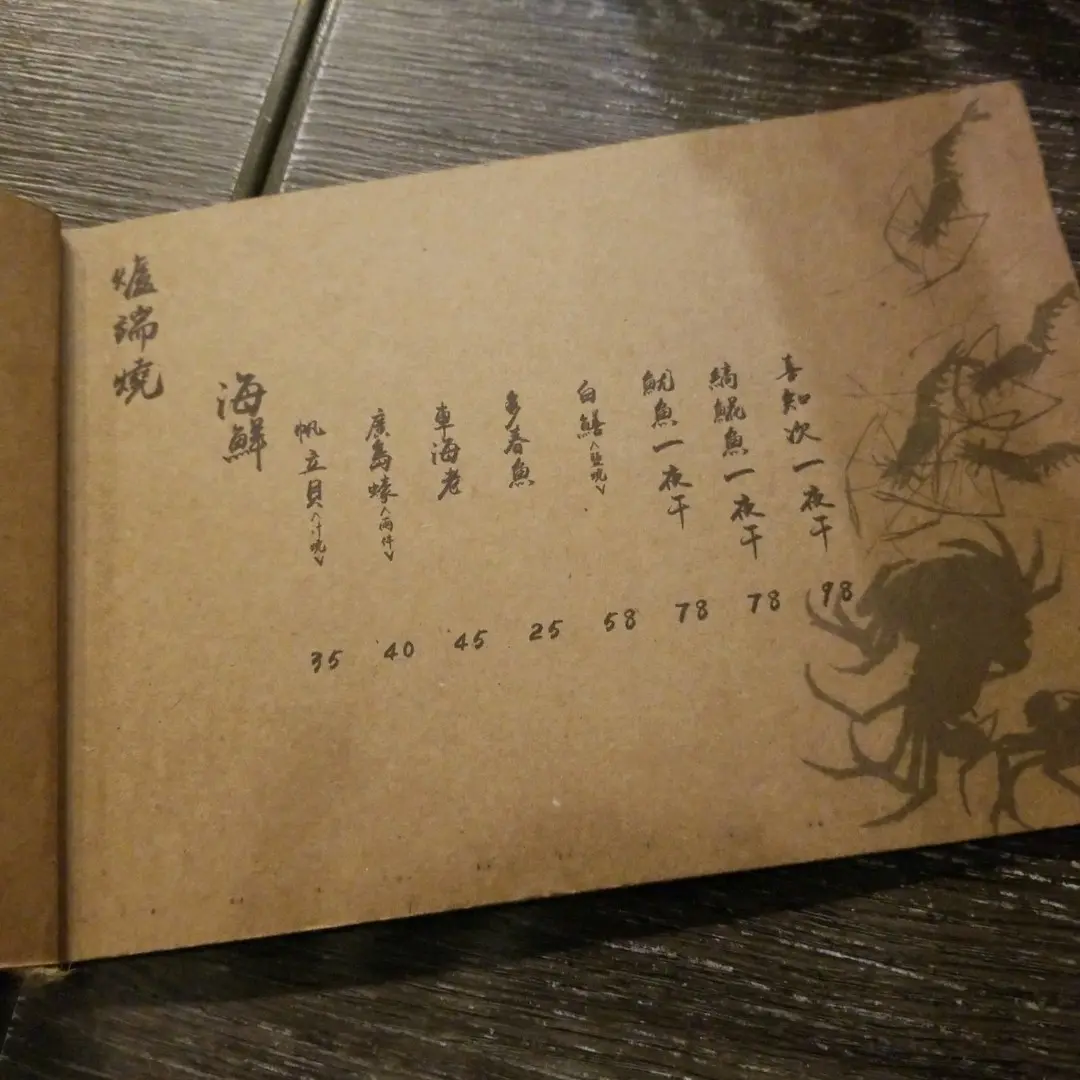 爐端燒
海鮮
帆立貝︿汁焼﹀ 35
廣島蠔︿兩件﹀ 40
車海老 45
多春魚 25
白鱔︿塩焼﹀ 58
魷魚一夜干 78
縞鯤魚一夜干 78
喜知次一夜干 98